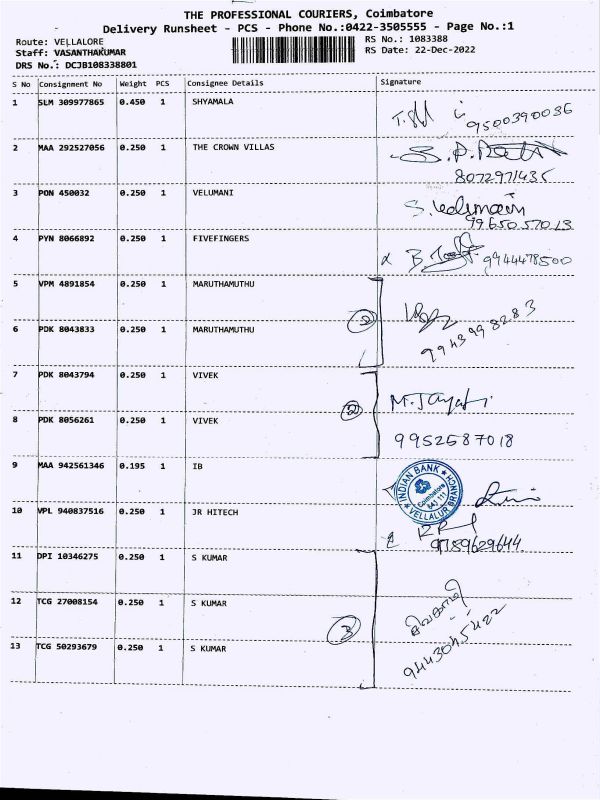 THE PROFESSIONAL COURIERS, Coimbatore
Delivery Runsheet - PCS - Phone No.:0422-3505555 - Page No.:1
Route: VELLALORE
RS No.: 1083388
Staff: VASANTHAKUMAR
RS Date: 22-Dec-2022
DRS No.: DCJB108338801
S No Consignment No Weight PCS Consignee Details Signature
1 SLM 309977865 0.450 1 SHYAMALA
9500390036
2 MAA 292527056 0.250 1 THE CROWN VILLAS
8072971435
3 PON 450032 0.250 1 VELUMANI
9965057013
4 PYN 8066892 0.250 1 FIVEFINGERS
9944478500
5 VPM 4891854 0.250 1 MARUTHAMUTHU
2
6 PDK 8043833 0.250 1 MARUTHAMUTHU
9943998283
7 PDK 8043794 0.250 1 VIVEK
2 M. Jayati
8 PDK 8056261 0.250 1 VIVEK
9952587018
9 MAA 942561346 0.195 1 IB
INDIAN BANK
Coimbatore
641 111
VELLALUR BRANCH
10 VPL 940837516 0.250 1 JR HITECH
9789629644
11 DPI 10346275 0.250 1 S KUMAR
12 TCG 27008154 0.250 1 S KUMAR
3
13 TCG 50293679 0.250 1 S KUMAR
9443045422